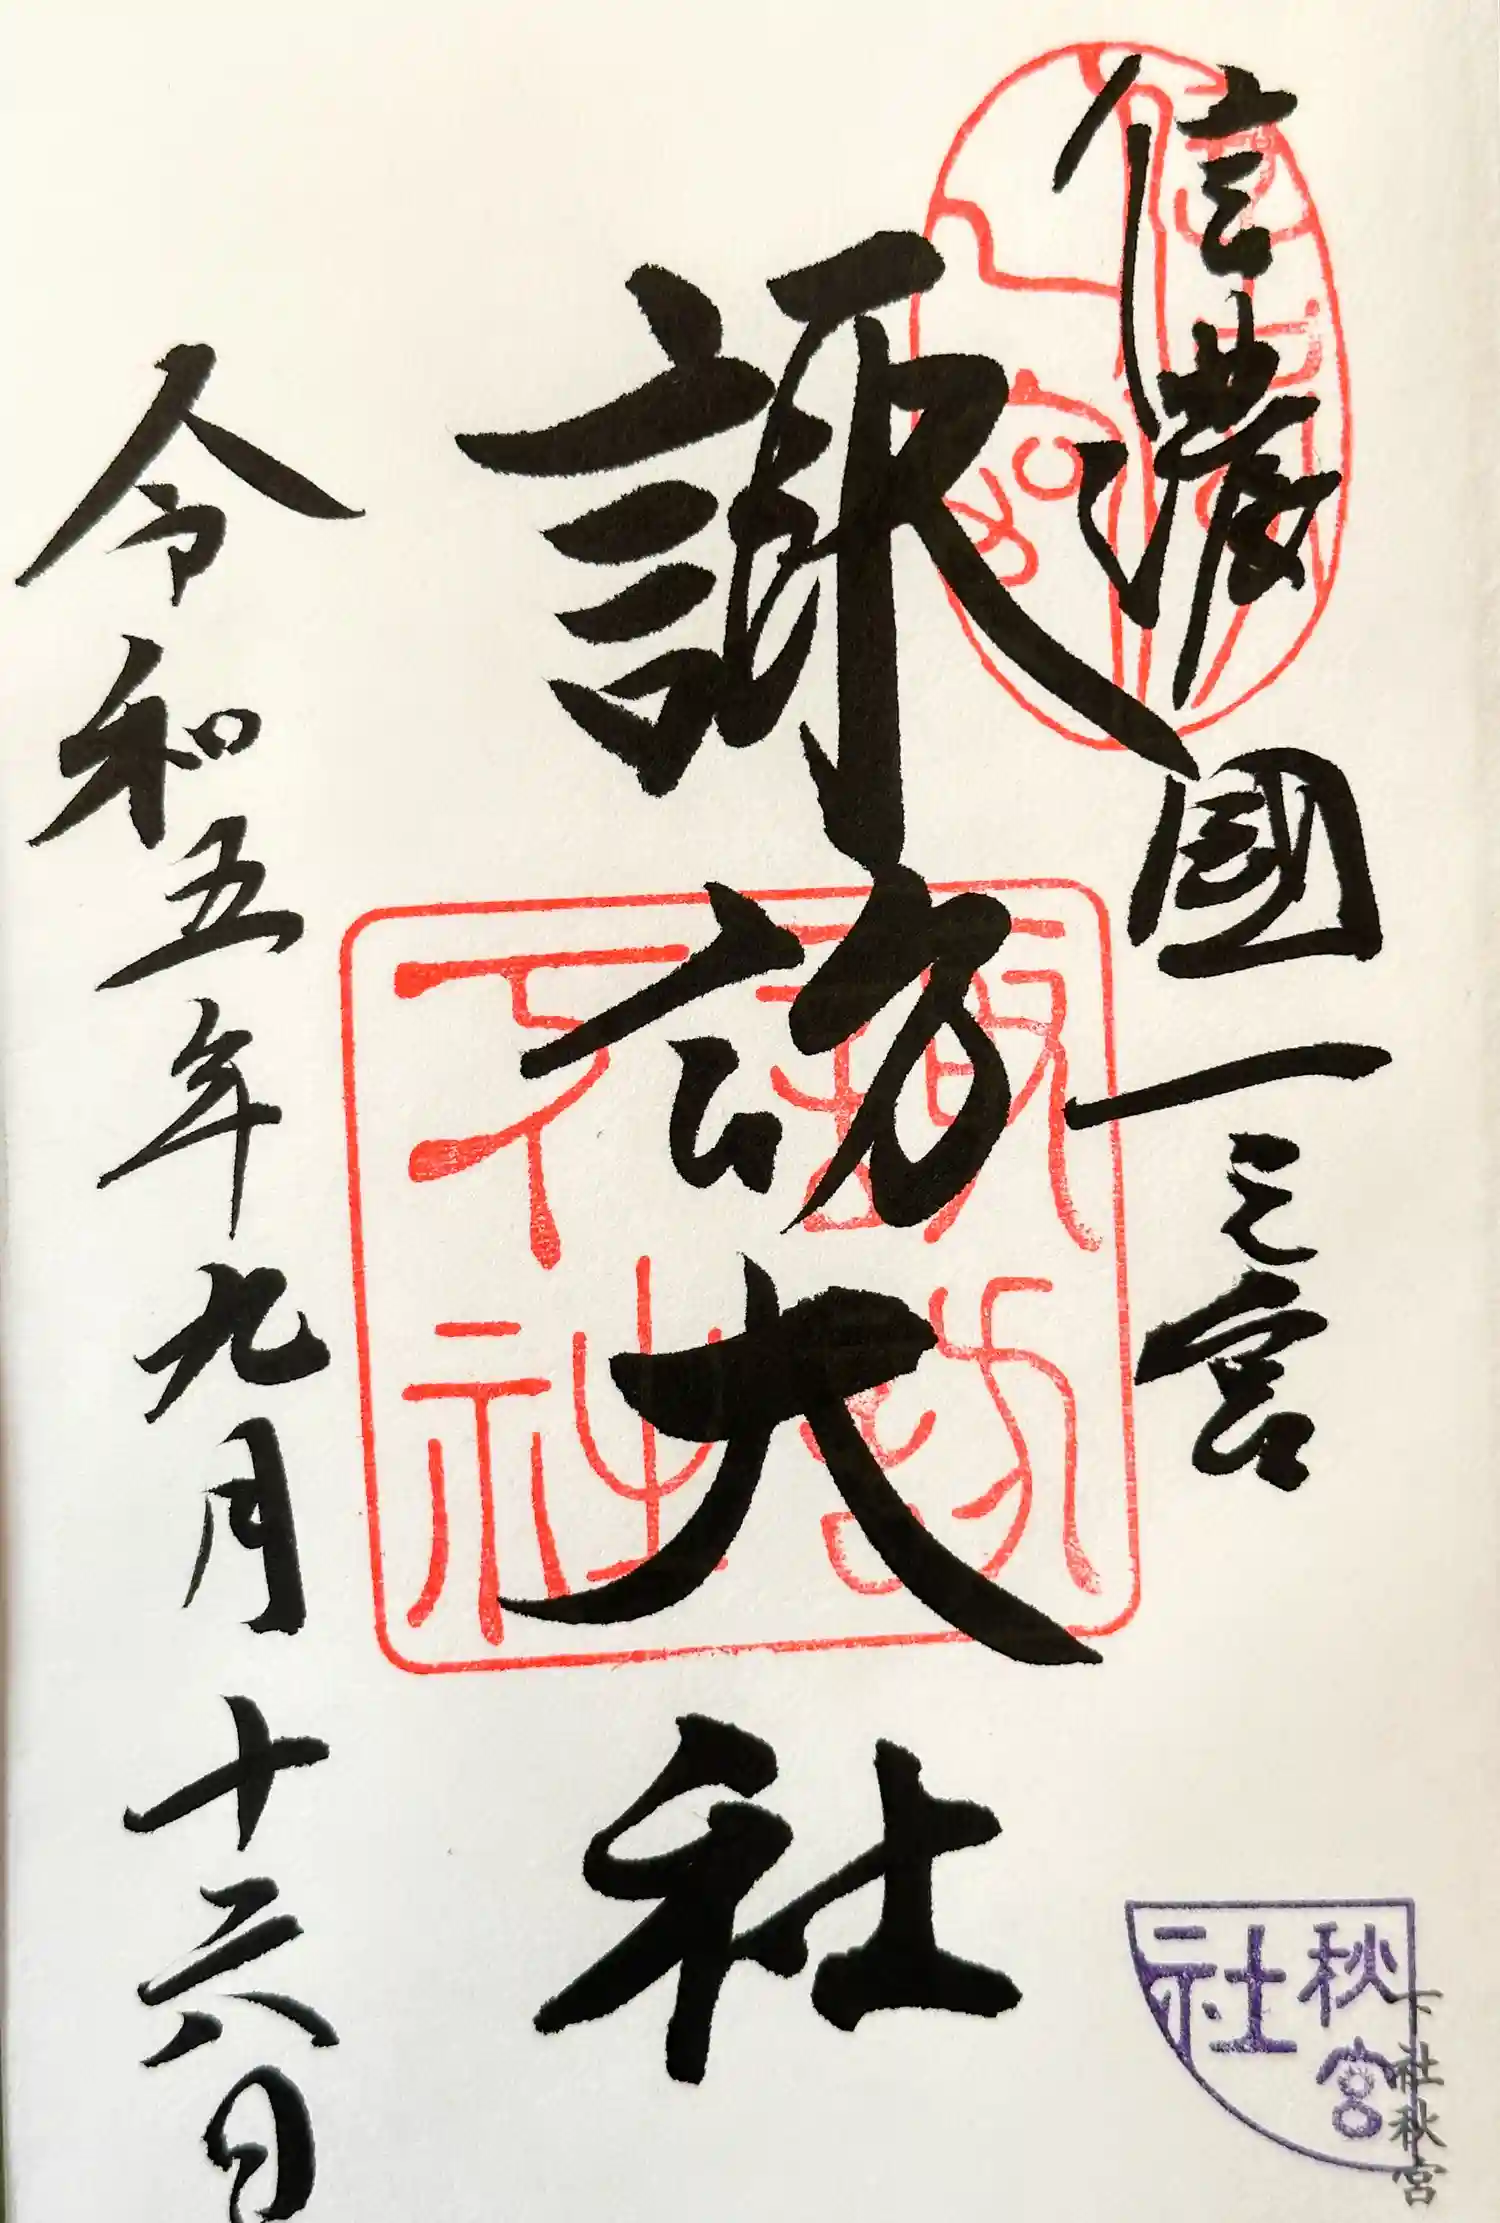 信濃國一之宮
諏訪大社
令和五年九月十六日
秋宮
社
下社秋宮